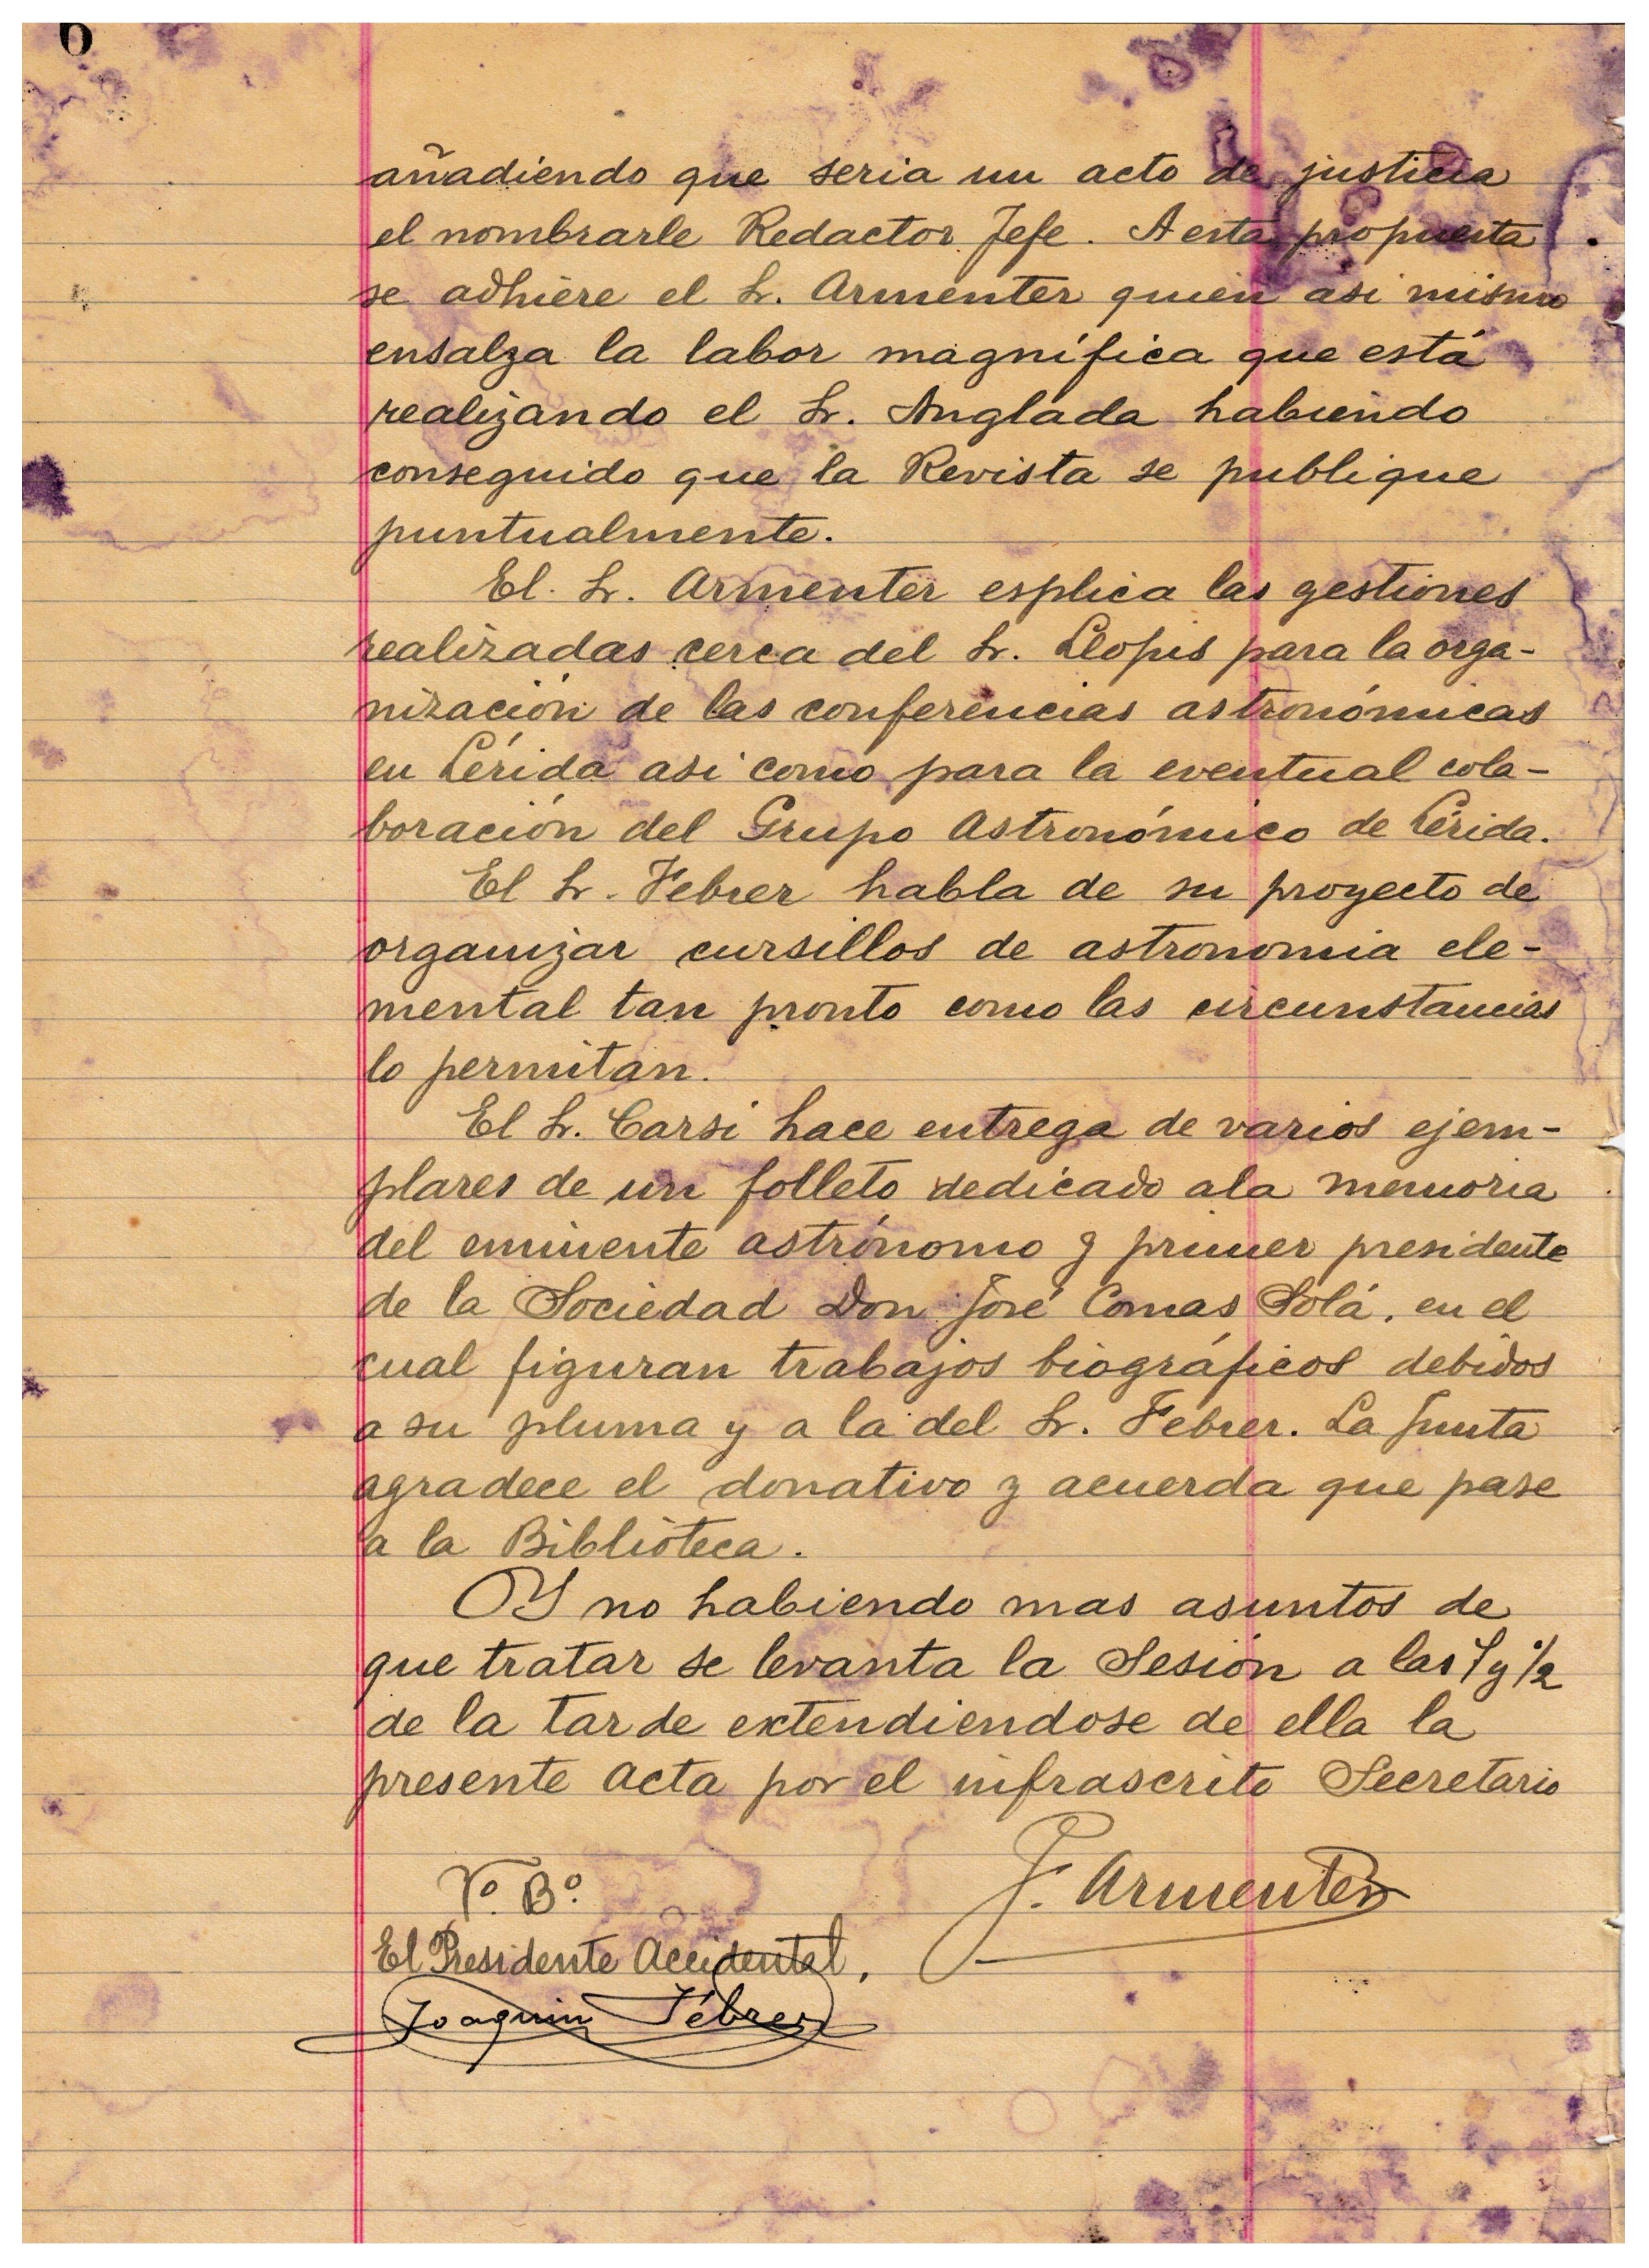 6
añadiendo que seria un acto de justicia
el nombrarle Redactor Jefe. A esta propuesta
se adhiere el Sr. Armenter quien asi mismo
ensalza la labor magnífica que está
realizando el Sr. Anglada habiendo
conseguido que la Revista se publique
puntualmente.
El. Sr. Armenter esplica las gestiones
realizadas cerca del Sr. Llopis para la orga-
nización de las conferencias astronómicas
en Lérida asi como para la eventual cola-
boración del Grupo Astronómico de Lérida.
El Sr. Febrer habla de su proyecto de
organizar cursillos de astronomia ele-
mental tan pronto como las circunstancias
lo permitan.
El Sr. Carsi hace entrega de varios ejem-
plares de un folleto dedicado a la memoria
del eminente astrónomo y primer presidente
de la Sociedad Don José Comas Solá, en el
cual figuran trabajos biográficos debidos
a su pluma y a la del Sr. Febrer. La Junta
agradece el donativo y acuerda que pase
a la Biblioteca.
Y no habiendo mas asuntos de
que tratar se levanta la Sesión a las y 1/2
de la tarde extendiendose de ella la
presente acta por el infrascrito Secretario
J. Armenter
Vº. Bº.
El Presidente Accidental,
Joaquin Febrer